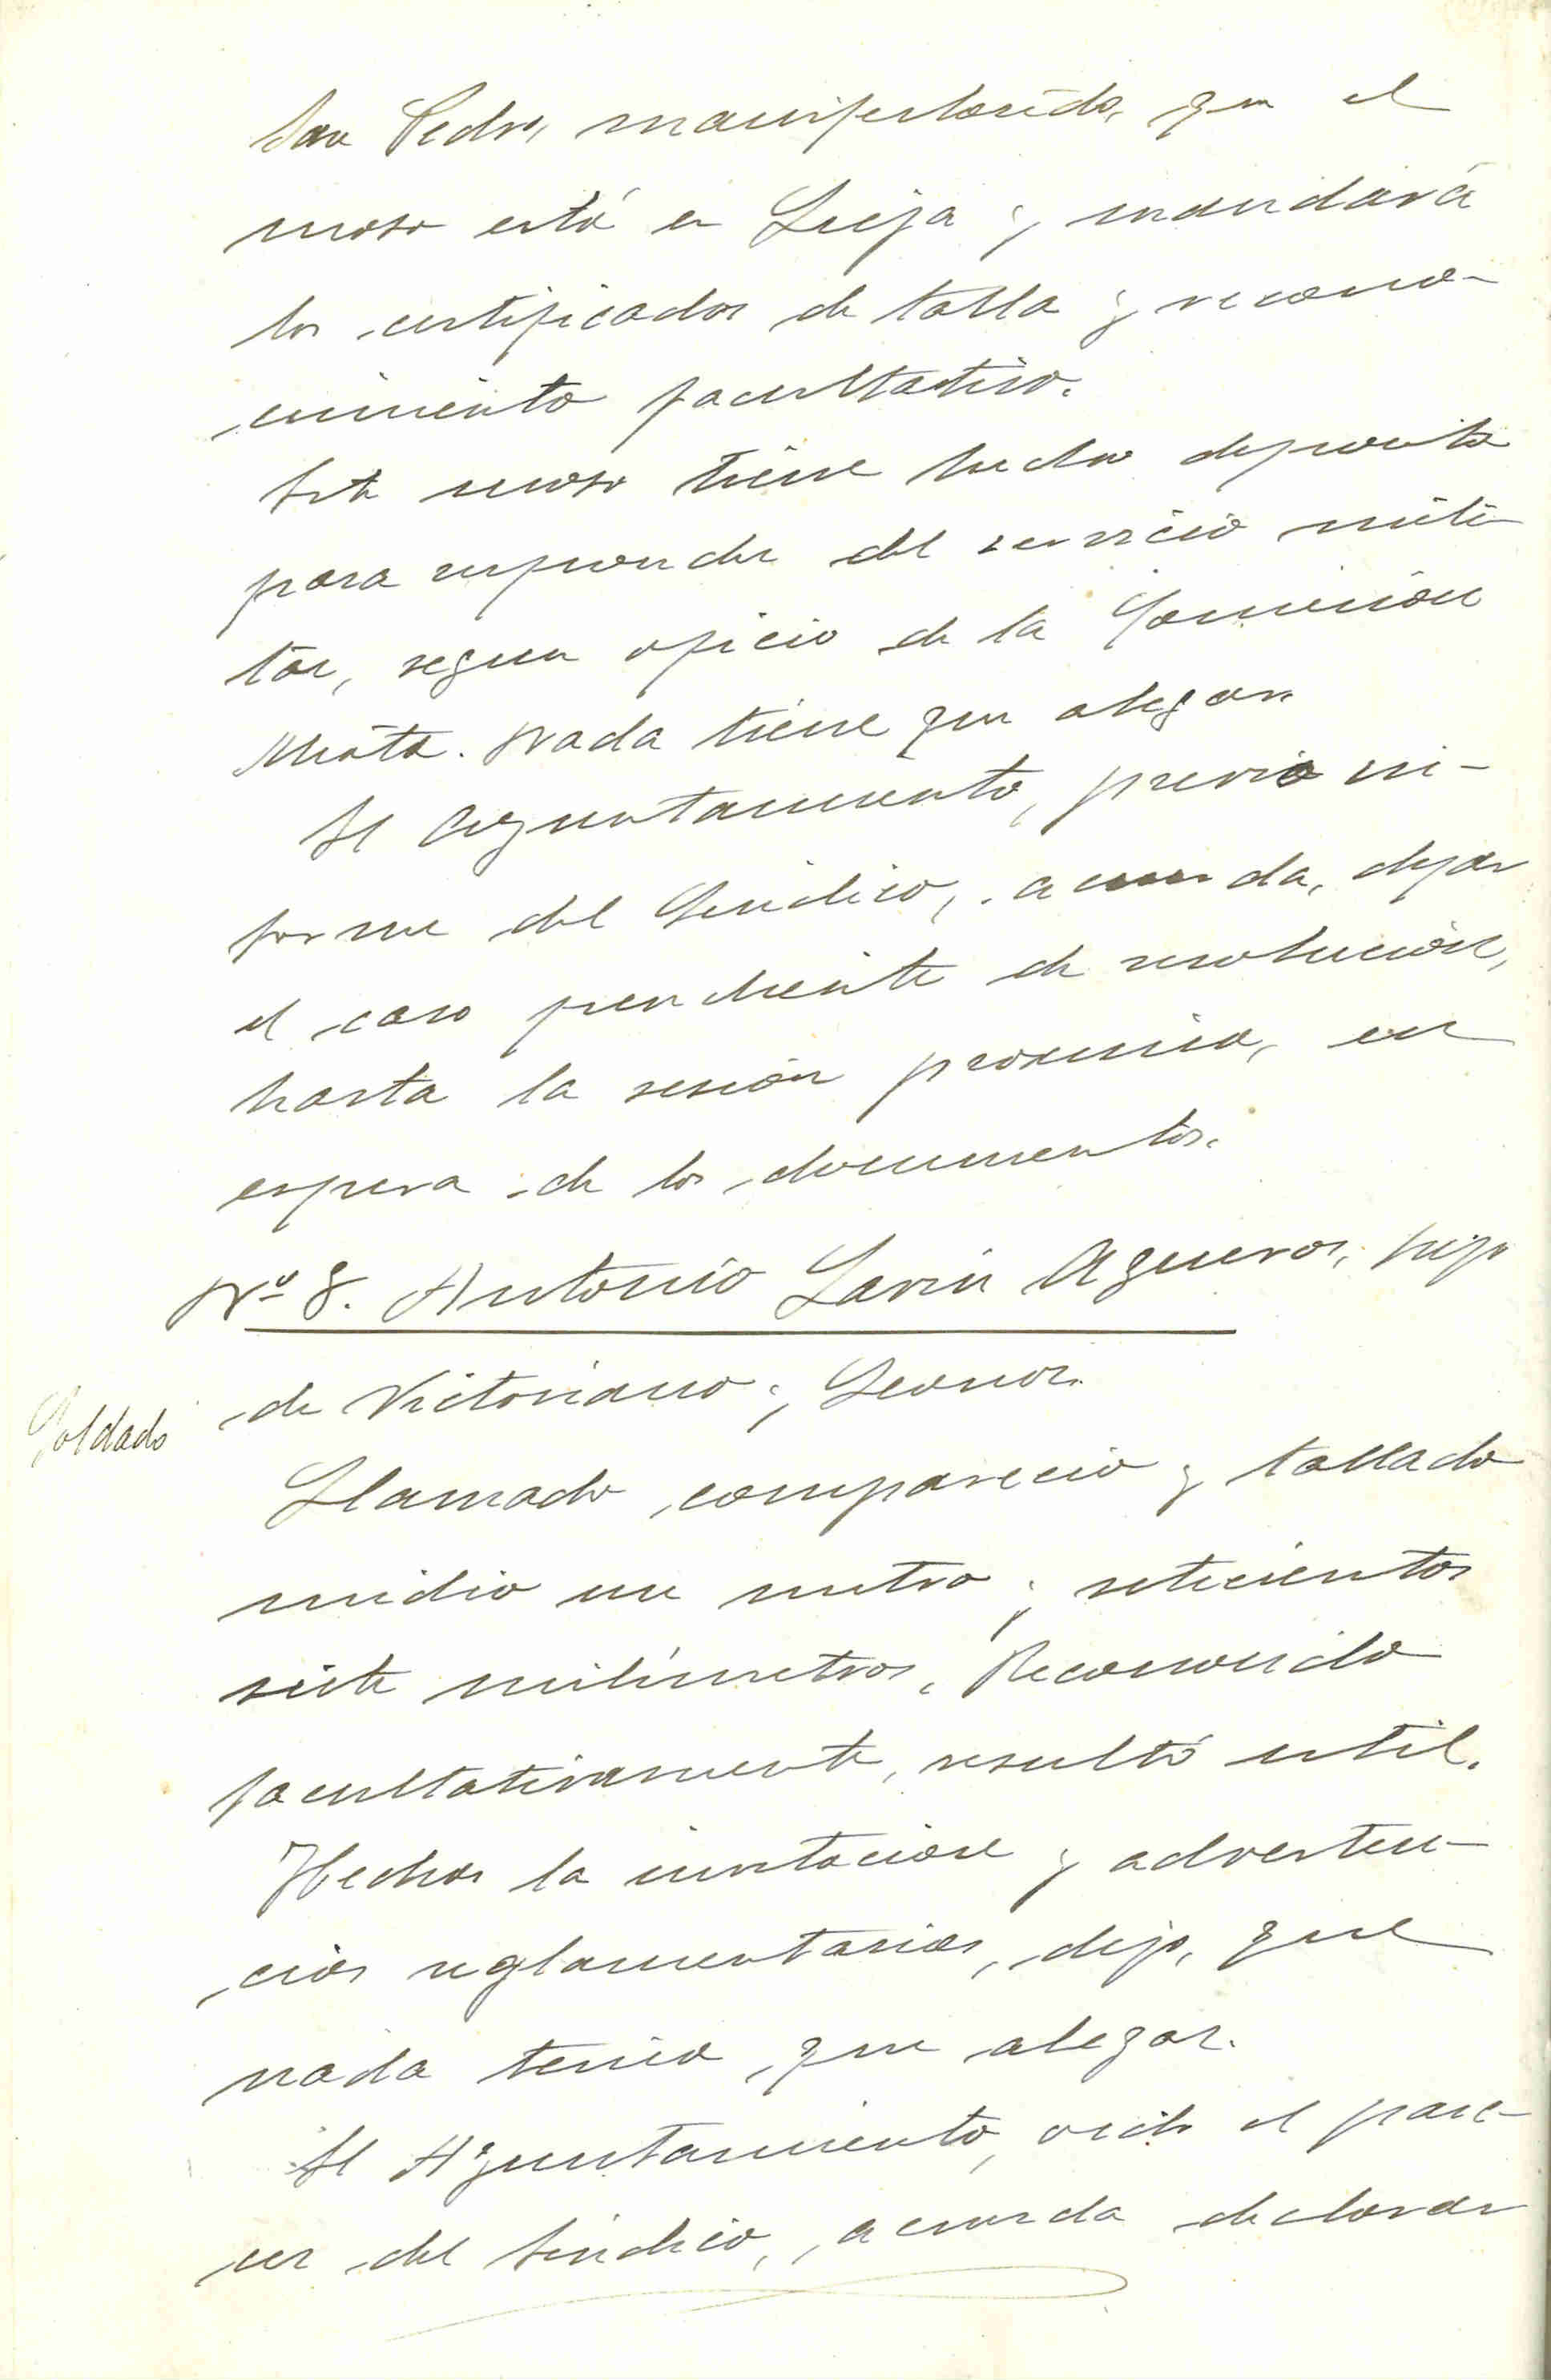 San Pedro, manifestando, que el
mozo está en Lieja y mandará
los certificados de talla y recono-
cimiento facultativo.
Este mozo tiene hecho deposito
para responder del servicio mili-
tar, segun oficio de la Comisión
Mixta. Nada tiene que alegar.
El Ayuntamiento, previo in-
forme del Sindico, acuerda, dejar
el caso pendiente de resolución,
hasta la sesión proxima, en
espera de los documentos.
Nº 8. Antonio Lavin Agueros, hijo
Soldado
de Victoriano y Leonor.
Llamado compareció y tallado
midio un metro y setecientos
siete milimetros. Reconocido
facultativamente, resultó util.
Hechas la invitacion y adverten-
cias reglamentarias, dijo, que
nada tenia que alegar.
El Ayuntamiento, oido el pare-
cer del Sindico, acuerda declarar